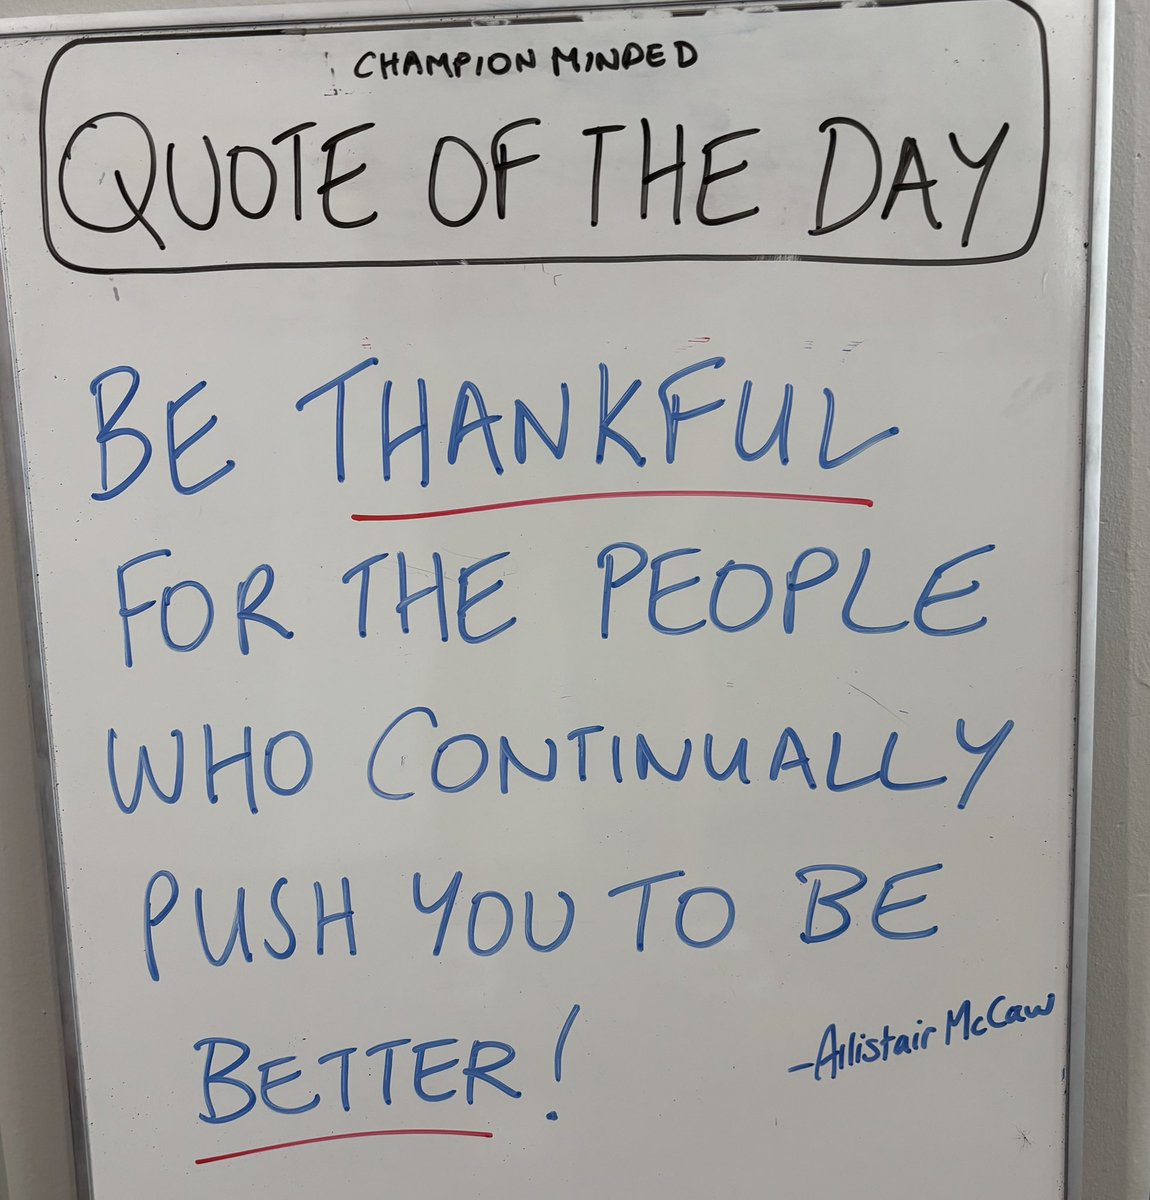 CHAMPION MINDED
QUOTE OF THE DAY
BE THANKFUL
FOR THE PEOPLE
WHO CONTINUALLY
PUSH YOU TO BE
BETTER!
-Allistair McCaw